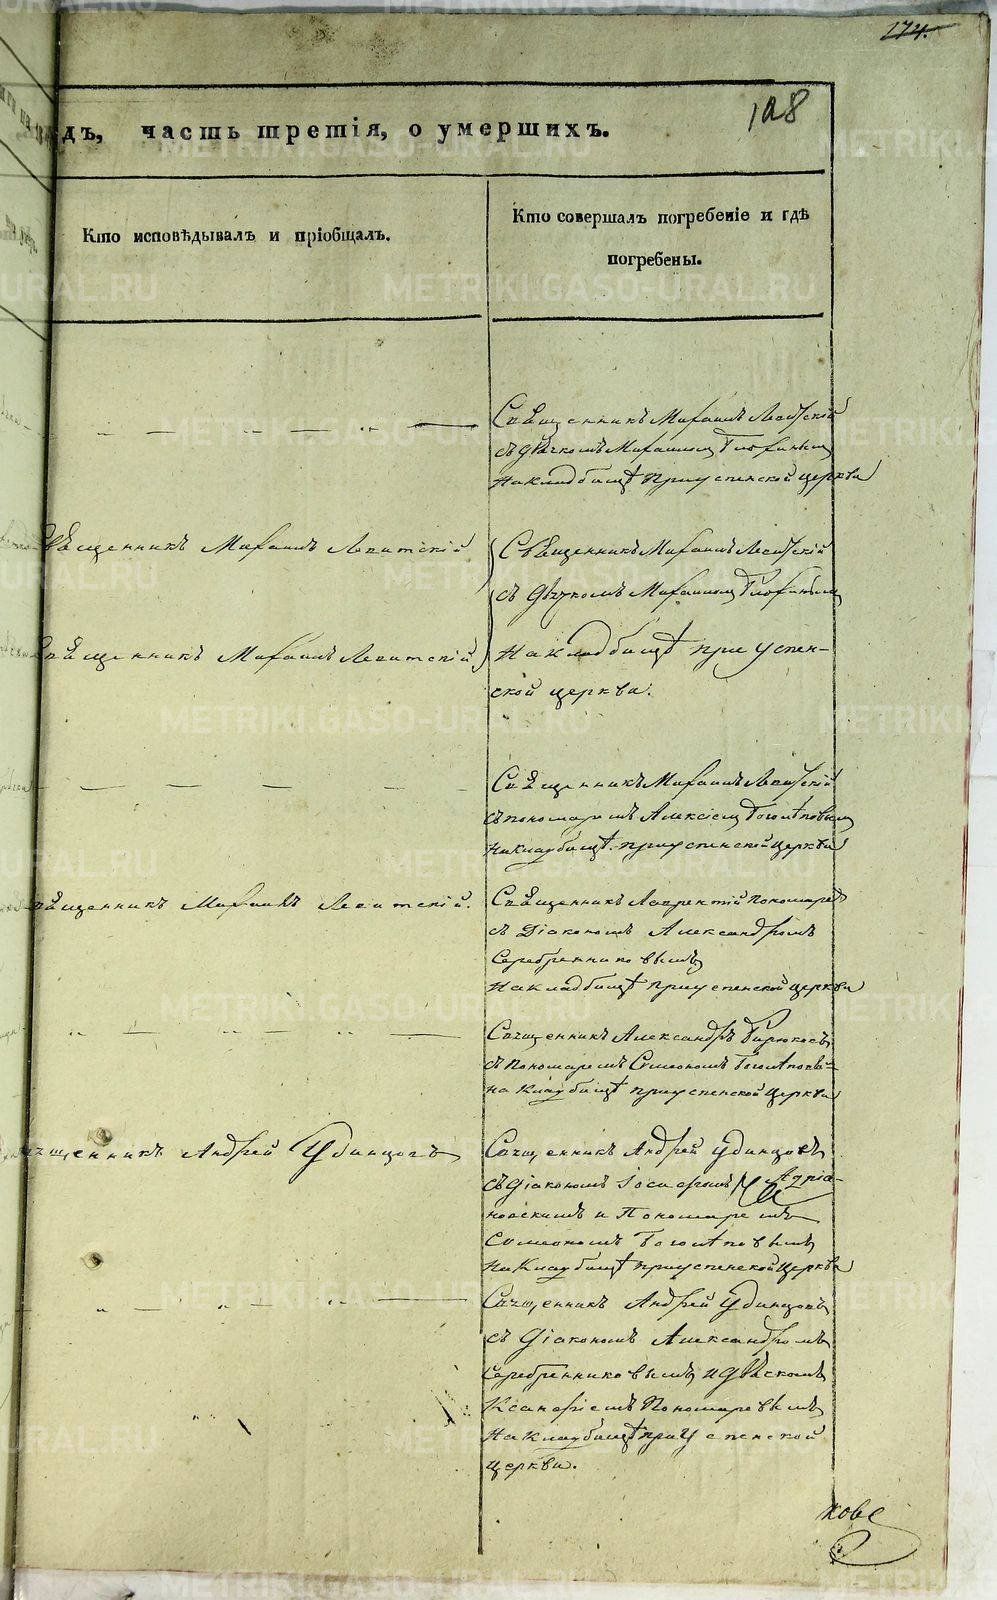 174.
108
дъ, часть третія, о умершихъ.
Кто исповѣдывалъ и пріобщалъ.
Кто совершалъ погребеніе и гдѣ
погребены.
Священникъ Михаилъ Левитскій
съ дьячкомъ Михаиломъ
на кладбищѣ при успенской церкви
Священникъ Михаилъ Левитскій
Священникъ Михаилъ Левитскій
съ дьячкомъ Михаиломъ
Священникъ Михаилъ Левитскій
на кладбищѣ при успен-
ской церкви.
Священникъ Михаилъ Левитскій
съ пономаремъ Алексіемъ Боголѣповымъ
на кладбищѣ при успенской церкви
Священникъ Михаилъ Левитскій.
Священникъ Лаврентій Пономаревъ
съ Діакономъ Александромъ
Серебренниковымъ
на кладбищѣ при успенской церкви
Священникъ Александръ Бирюковъ
съ Пономаремъ Симеономъ Боголѣповы-
на кладбищѣ при успенской церкви
Священникъ Андрей Удинцовъ
Священникъ Андрей Удинцовъ
съ Діакономъ Іосафомъ Адріа-
новскимъ и Пономаремъ
Симеономъ Боголѣповымъ
на кладбищѣ при успенской церкви
Священникъ Андрей Удинцовъ
съ Діакономъ Александромъ
Серебренниковымъ и дьячкомъ
Ксанфіемъ Пономаревымъ
на кладбищѣ при Успенской
церкви.
ковс
METRIKI.GASO-URAL.RU